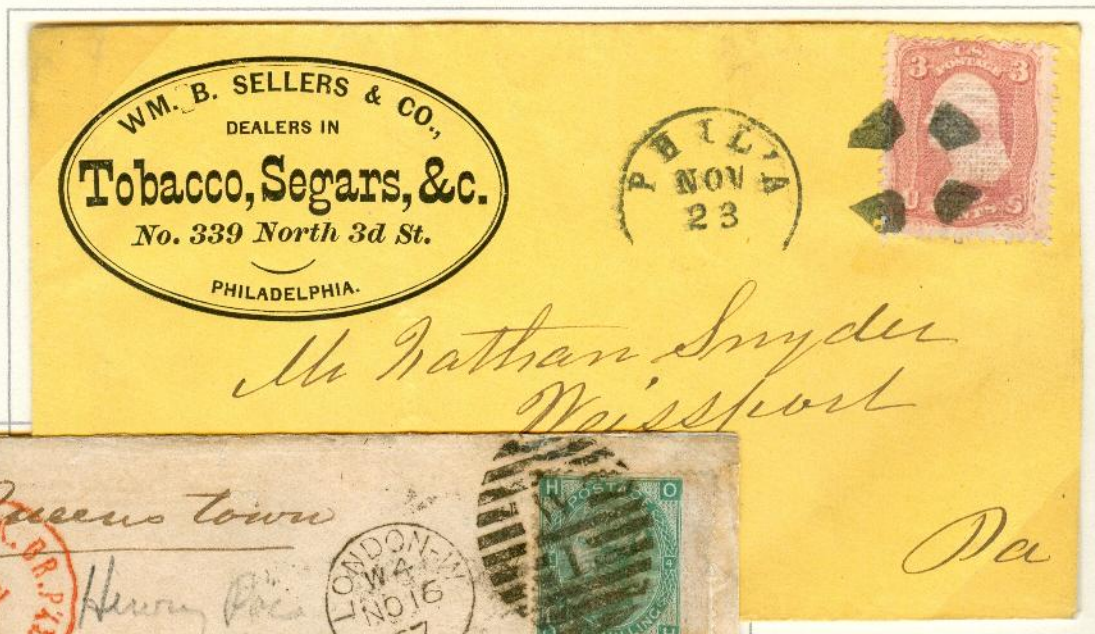 WM. B. SELLERS & CO.,
DEALERS IN
Tobacco, Segars, &c.
No. 339 North 3d St.
PHILADELPHIA.
PHIL'A
NOV
23
U.S.
POSTAGE
3 3
U S
Mr Nathan Snyder
Weissport
Pa
Queenstown
BR. PK
Henry
LONDON-W
W 4
NO 16
67
H O
POSTAGE
1
4